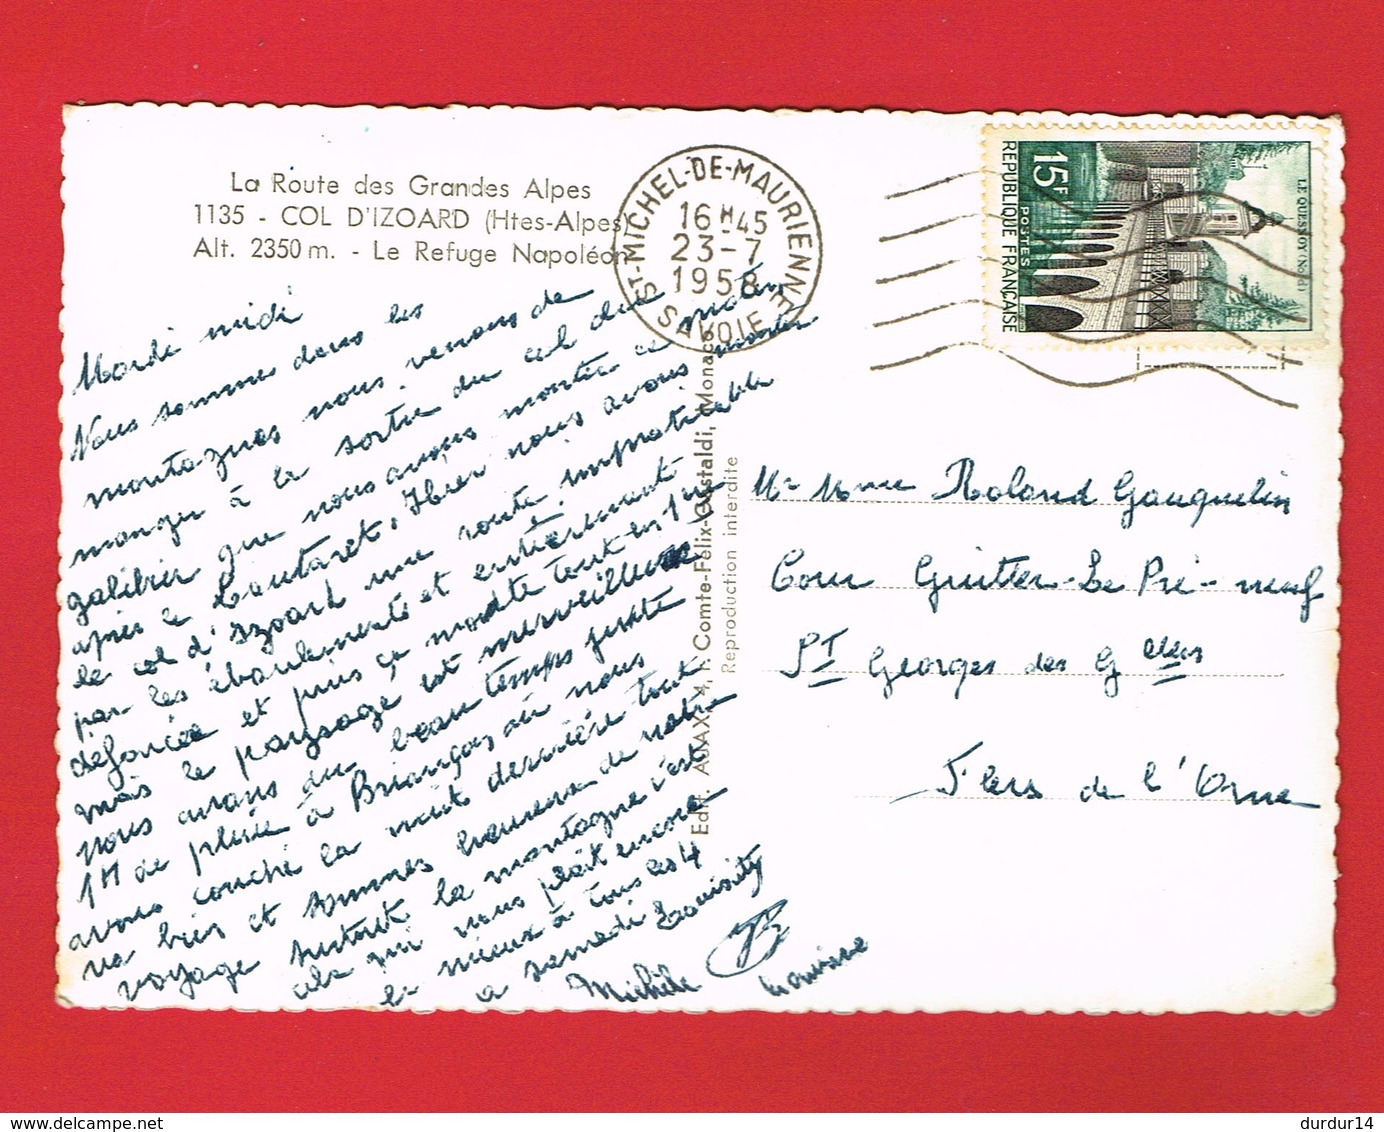 La Route des Grandes Alpes
1135 - COL D'IZOARD (Htes-Alpes)
Alt. 2350 m. - Le Refuge Napoléon
ST-MICHEL-DE-MAURIENNE
16H45
23-7
1958
SAVOIE
15F
POSTES
REPUBLIQUE FRANÇAISE
LE QUESNOY (Nord)
Mardi midi
Nous somme dans les
montagnes nous venons de
manger à la sortie du col du
galibier que nous avons montée ce matin
après le Lautaret. Hier nous avons monter
le col d'Izoard une route impraticable
par les éboulements et entièrement
défoncée et puis ça monte tout en 1ère
mais le paysage est merveilleux
nous avons du beau temps juste
1H de pluie à Briançon où nous
avons couché la nuit dernière tout
va bien et sommes heureux de notre
voyage surtout la montagne c'est
ce qui nous plait encore
le mieux à tous les 4
a samedi
Michèle
Edit. AJAX, 4, r. Comte-Félix-Gastaldi, Monaco
Reproduction interdite
Mr Mme Roland Gauquelin
Cour Guitter-Le Pré-neuf
St Georges des Gllers
Flers de l'Orne
durdur14